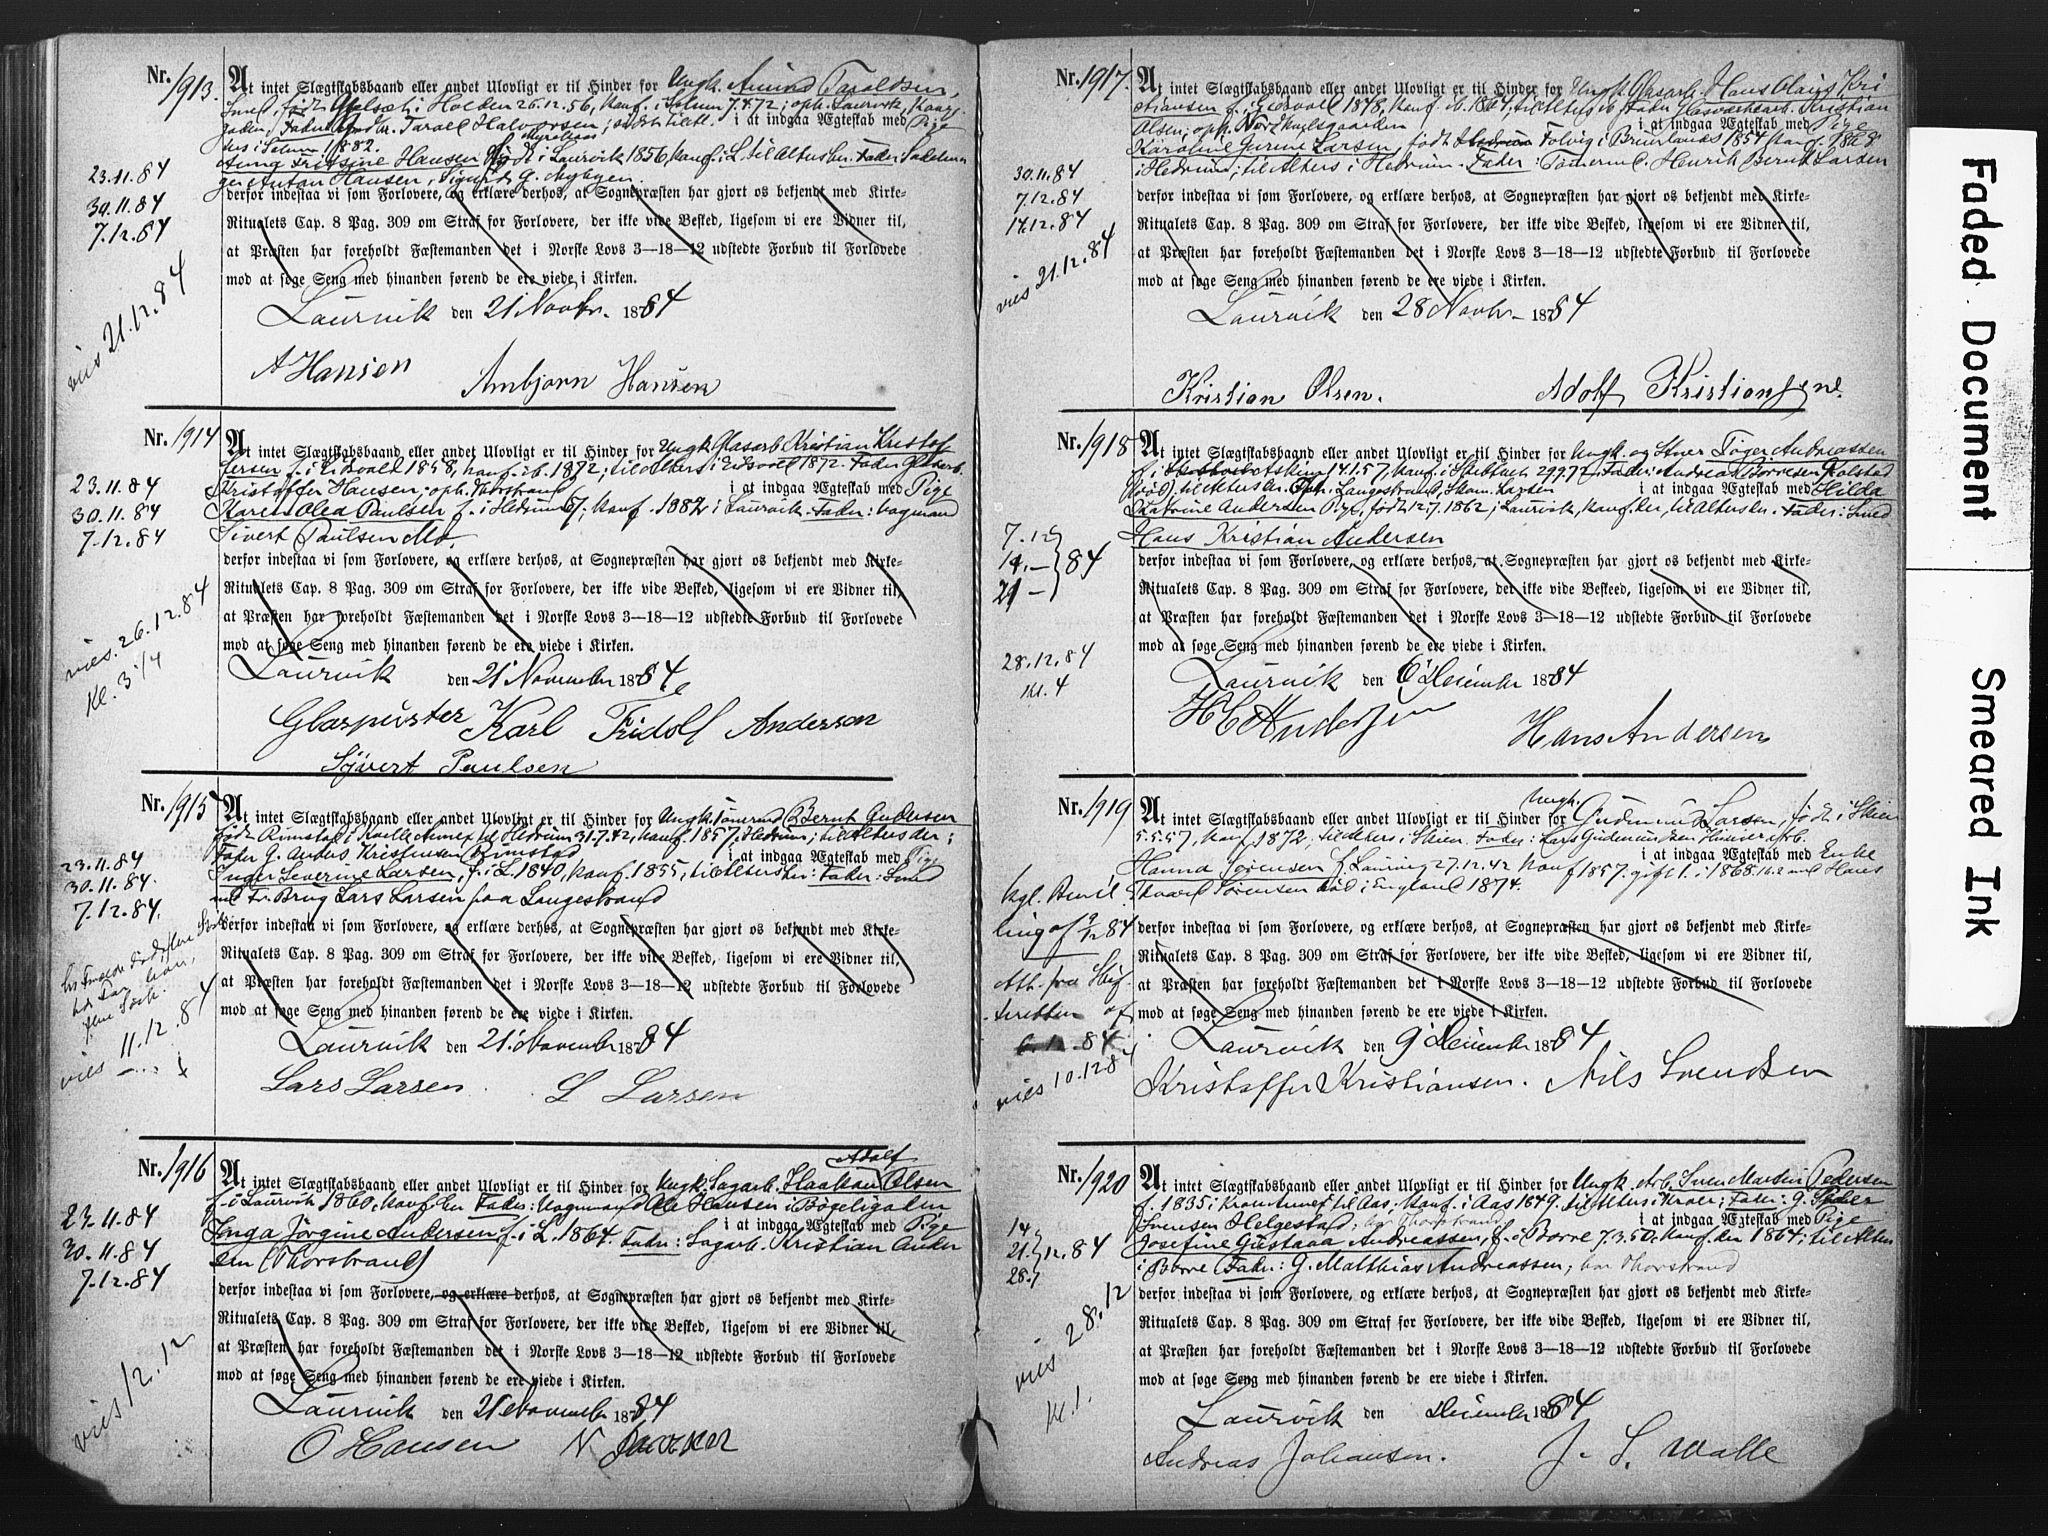 Nr. 1913. At intet Slægtskabsbaand eller andet Ulovligt er til Hinder for Ungk. Amund Taraldsen,
Smed, født i Holden 26.12.56, konf. i Solum 7.4.72; oph. Laurvik,
Fader Taral Halvorsen; i at indgaa Ægteskab med Pige
i Solum 1882.
Hansen født i Laurvik 1856, konf. i L. til Alters her. Fader Sadelma
ger Anton Hansen,
23.11.84
30.11.84
7.12.84
derfor indestaa vi som Forlovere, og erklære derhos, at Sognepræsten har gjort os bekjendt med Kirke-
Ritualets Cap. 8 Pag. 309 om Straf for Forlovere, der ikke vide Besked, ligesom vi ere Vidner til,
at Præsten har foreholdt Fæstemanden det i Norske Lovs 3—18—12 udstedte Forbud til Forlovede
mod at søge Seng med hinanden førend de ere viede i Kirken.
viet 21.12.84
Laurvik den 21 Novbr. 1884
A Hansen Arnbjørn Hansen
Nr. 1914 At intet Slægtskabsbaand eller andet Ulovligt er til Hinder for Ungk. Glasarb. Kristian Kristof
fersen f. i Eidsvold 1858, konf. ib. 1872, til Alters i Eidsvold 1872. Fader Glasarb.
Kristoffer Hansen; oph. Thorstrand i at indgaa Ægteskab med Pige
Karen Olea Paulsen f. i Hedrum 67, konf. 1882 i Laurvik. Fader: Vognmand
Sivert Paulsen Mo.
23.11.84
30.11.84
7.12.84
derfor indestaa vi som Forlovere, og erklære derhos, at Sognepræsten har gjort os bekjendt med Kirke-
Ritualets Cap. 8 Pag. 309 om Straf for Forlovere, der ikke vide Besked, ligesom vi ere Vidner til,
at Præsten har foreholdt Fæstemanden det i Norske Lovs 3—18—12 udstedte Forbud til Forlovede
mod at søge Seng med hinanden førend de ere viede i Kirken.
viet. 26.12.84
Kl. 3 1/4
Laurvik den 21 November 1884
Glaspuster Karl Fridolf Anderson
Sivert Paulsen
Nr. 1915 At intet Slægtskabsbaand eller andet Ulovligt er til Hinder for Ungk. Tømmermd Bernt Andersen
født Rimstad i Kvelle Annex til Hedrum 31.7.42, konf. 1857, i Hedrum, til Alters der;
Fader G. Anders Kristensen Rimstad i at indgaa Ægteskab med Pige
Inger Severine Larsen, f. i L. 1840, konf. 1855, til Alters her: Fader: Smed
Brug Lars Larsen paa Langestrand
23.11.84
30.11.84.
7.12.84.
derfor indestaa vi som Forlovere, og erklære derhos, at Sognepræsten har gjort os bekjendt med Kirke-
Ritualets Cap. 8 Pag. 309 om Straf for Forlovere, der ikke vide Besked, ligesom vi ere Vidner til,
at Præsten har foreholdt Fæstemanden det i Norske Lovs 3—18—12 udstedte Forbud til Forlovede
mod at søge Seng med hinanden førend de ere viede i Kirken.
viet 11.12.84
Laurvik den 21 November 1884
Lars Larsen. L Larsen
Adolf
Nr. 1916 At intet Slægtskabsbaand eller andet Ulovligt er til Hinder for Ungk. Sagarb. Haakon Olsen
f. i Laurvik 1860, konf. her Fader: Vognmand Ole Hansen i Bøgeligaden
i at indgaa Ægteskab med Pige
Inga Jørgine Andersen f. i L. 1864. Fader: Sagarb. Kristian Ander
sen (Thorstrand)
23.11.84
30.11.84
7.12.84
derfor indestaa vi som Forlovere, og erklære derhos, at Sognepræsten har gjort os bekjendt med Kirke-
Ritualets Cap. 8 Pag. 309 om Straf for Forlovere, der ikke vide Besked, ligesom vi ere Vidner til,
at Præsten har foreholdt Fæstemanden det i Norske Lovs 3—18—12 udstedte Forbud til Forlovede
mod at søge Seng med hinanden førend de ere viede i Kirken.
viet 12.12
Laurvik den 21 November 1884
O Hansen N
Nr. 1917. At intet Slægtskabsbaand eller andet Ulovligt er til Hinder for Ungk. Glasarb. Hans Olaus Kri
stiansen f. i Eidsvold 1848, konf. ib. 1864, til Alters ib. Fader Glasværksarb. Kristian
Olsen; oph. i at indgaa Ægteskab med Pige
Karoline Gurine Larsen, født Folvig i Brunlands 1854, konf. 1868
i Hedrum; til Alters i Hedrum. Fader: Tømermd. Henrik Bernt Larsen
30.11.84
7.12.84
14.12.84
derfor indestaa vi som Forlovere, og erklære derhos, at Sognepræsten har gjort os bekjendt med Kirke-
Ritualets Cap. 8 Pag. 309 om Straf for Forlovere, der ikke vide Besked, ligesom vi ere Vidner til,
at Præsten har foreholdt Fæstemanden det i Norske Lovs 3—18—12 udstedte Forbud til Forlovede
mod at søge Seng med hinanden førend de ere viede i Kirken.
viet 21.12.84
Laurvik den 28 Novbr. 1884
Kristian Olsen. Adolf Kristiansen.
Nr. 1918 At intet Slægtskabsbaand eller andet Ulovligt er til Hinder for Ungk. og Tøger Andreassen
f. i 14.1.57, konf. i Skibtvedt 29.9.72. Fader: Andreas Kolstad
til Alters her. Oph. i Langestrand, i at indgaa Ægteskab med Hilda
Katrine Andersen Pige, født 12.7.1862, i Laurvik, konf. her, til Alters her. Fader: Smed
Hans Kristian Andersen
7.12
14.—
21 —
84
derfor indestaa vi som Forlovere, og erklære derhos, at Sognepræsten har gjort os bekjendt med Kirke-
Ritualets Cap. 8 Pag. 309 om Straf for Forlovere, der ikke vide Besteed, ligesom vi ere Vidner til,
at Præsten har foreholdt Fæstemanden det i Norske Lovs 3—18—12 udstedte Forbud til Forlovede
mod at søge Seng med hinanden førend de ere viede i Kirken.
28.12.84
Kl. 4
Laurvik den 6 December 1884
H C Andersen
Hans Andersen
Nr. 1919 At intet Slægtskabsbaand eller andet Ulovligt er til Hinder for Ungk. Gudmund Larsen, født i Skien
5.5.57, konf. 1872; til Alters i Skien. Fader: Lars Gudmundsen
i at indgaa Ægteskab med Enke
Hanna Sørensen f. 27.12.42 konf 1857. gift 1. i 1868 med Hans
Sørensen død i England 1874.
kgl. Bevil
ling af 9/12 84
Att. fra Skif
teretten af
6.12.84
derfor indestaa vi som Forlovere, og erklære derhos, at Sognepræsten har gjort os bekjendt med Kirke-
Ritualets Cap. 8 Pag. 309 om Straf for Forlovere, der ikke vide Besked, ligesom vi ere Vidner til,
at Præsten har foreholdt Fæstemanden det i Norske Lovs 3—18—12 udstedte Forbud til Forlovede
mod at søge Seng med hinanden førend de ere viede i Kirken.
viet 10.12 84
Laurvik den 9 December 1884
Kristoffer Kristiansen. Nils Svendsen
Nr. 1920 At intet Slægtskabsbaand eller andet Ulovligt er til Hinder for Ungk. Arb. Sven Martin Pedersen
f. 1835 i Kroer Annex til Aas; konf. i Aas 1849. til Alters i Kroer; Fader: G. Peder
Svensen Helgestad; bor Thorstrand i at indgaa Æzteskab med Pige
Josefine Gustava Andreassen, f. i Borre 7.3.50, konf. der 1864; til Alters
i Borre Fader: G. Matthias Andreassen; bor Thorstrand
14
21
28
12.84
derfor indestaa vi som Forlovere, og erklære derhos, at Sognepræsten har gjort os bekjendt med Kirke-
Ritualets Cap. 8 Pag. 309 om Straf for Forlovere, der ikke vide Besked, ligesom vi ere Vidner til,
at Præsten har foreholdt Fæstemanden det i Norske Lovs 3—18—12 udstedte Forbud til Forlovede
mod at søge Seng med hinanden førend de ere viede i Kirken.
viet 28.12
kl. 1.
Laurvik den December 1884
Andreas Johansen. J. S. Walle
Faded Document
Smeared Ink